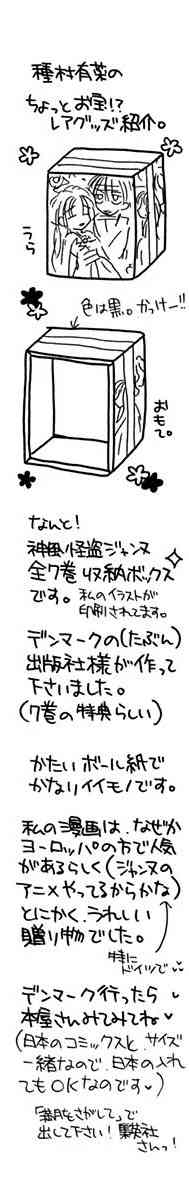 種村有菜の
ちょっとお宝!?
レアグッズ紹介。
うら
色は黒。かっけー!!
おもて。
なんと!
神風怪盗ジャンヌ
全7巻収納ボックス
です。私のイラストが
印刷されてます。
デンマークの(たぶん)
出版社様が作って
下さいました。
(7巻の特典らしい)
かたいボール紙で
かなりイイモノです。
私の漫画は、なぜか
ヨーロッパの方で人気
があるらしく(ジャンヌの
アニメやってるからかな)
とにかく、うれしい
贈り物でした。
特に
ドイツで
デンマーク行ったら
本屋さんみてみてね
(日本のコミックスと、サイズ
一緒なので、日本の入れ
てもOKなのです)
「満月をさがして」で
出して下さい!集英社
さんっ!